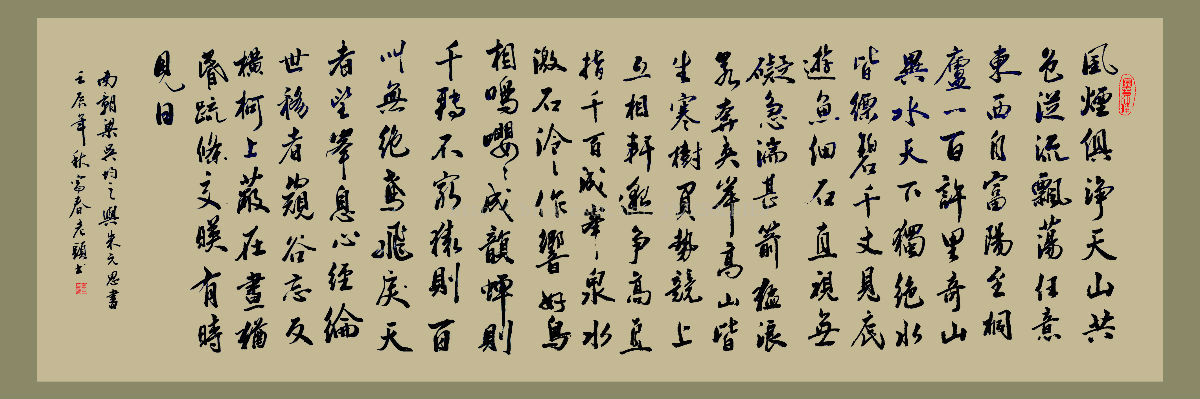 風煙俱淨天山共
色從流飄蕩任意
東西自富陽至桐
廬一百許里奇山
異水天下獨絕水
皆縹碧千丈見底
遊魚細石直視無
礙急湍甚箭猛浪
若奔夾岸高山皆
生寒樹負勢競上
互相軒邈爭高直
指千百成峯泉水
激石泠〻作響好鳥
相鳴嚶〻成韻蟬則
千轉不窮猿則百
叫無絕鳶飛戾天
者望峯息心經綸
世務者窺谷忘反
橫柯上蔽在晝猶
昏疏條交映有時
見日
南朝梁吳均之與朱元思書
壬辰年秋富春老頭書